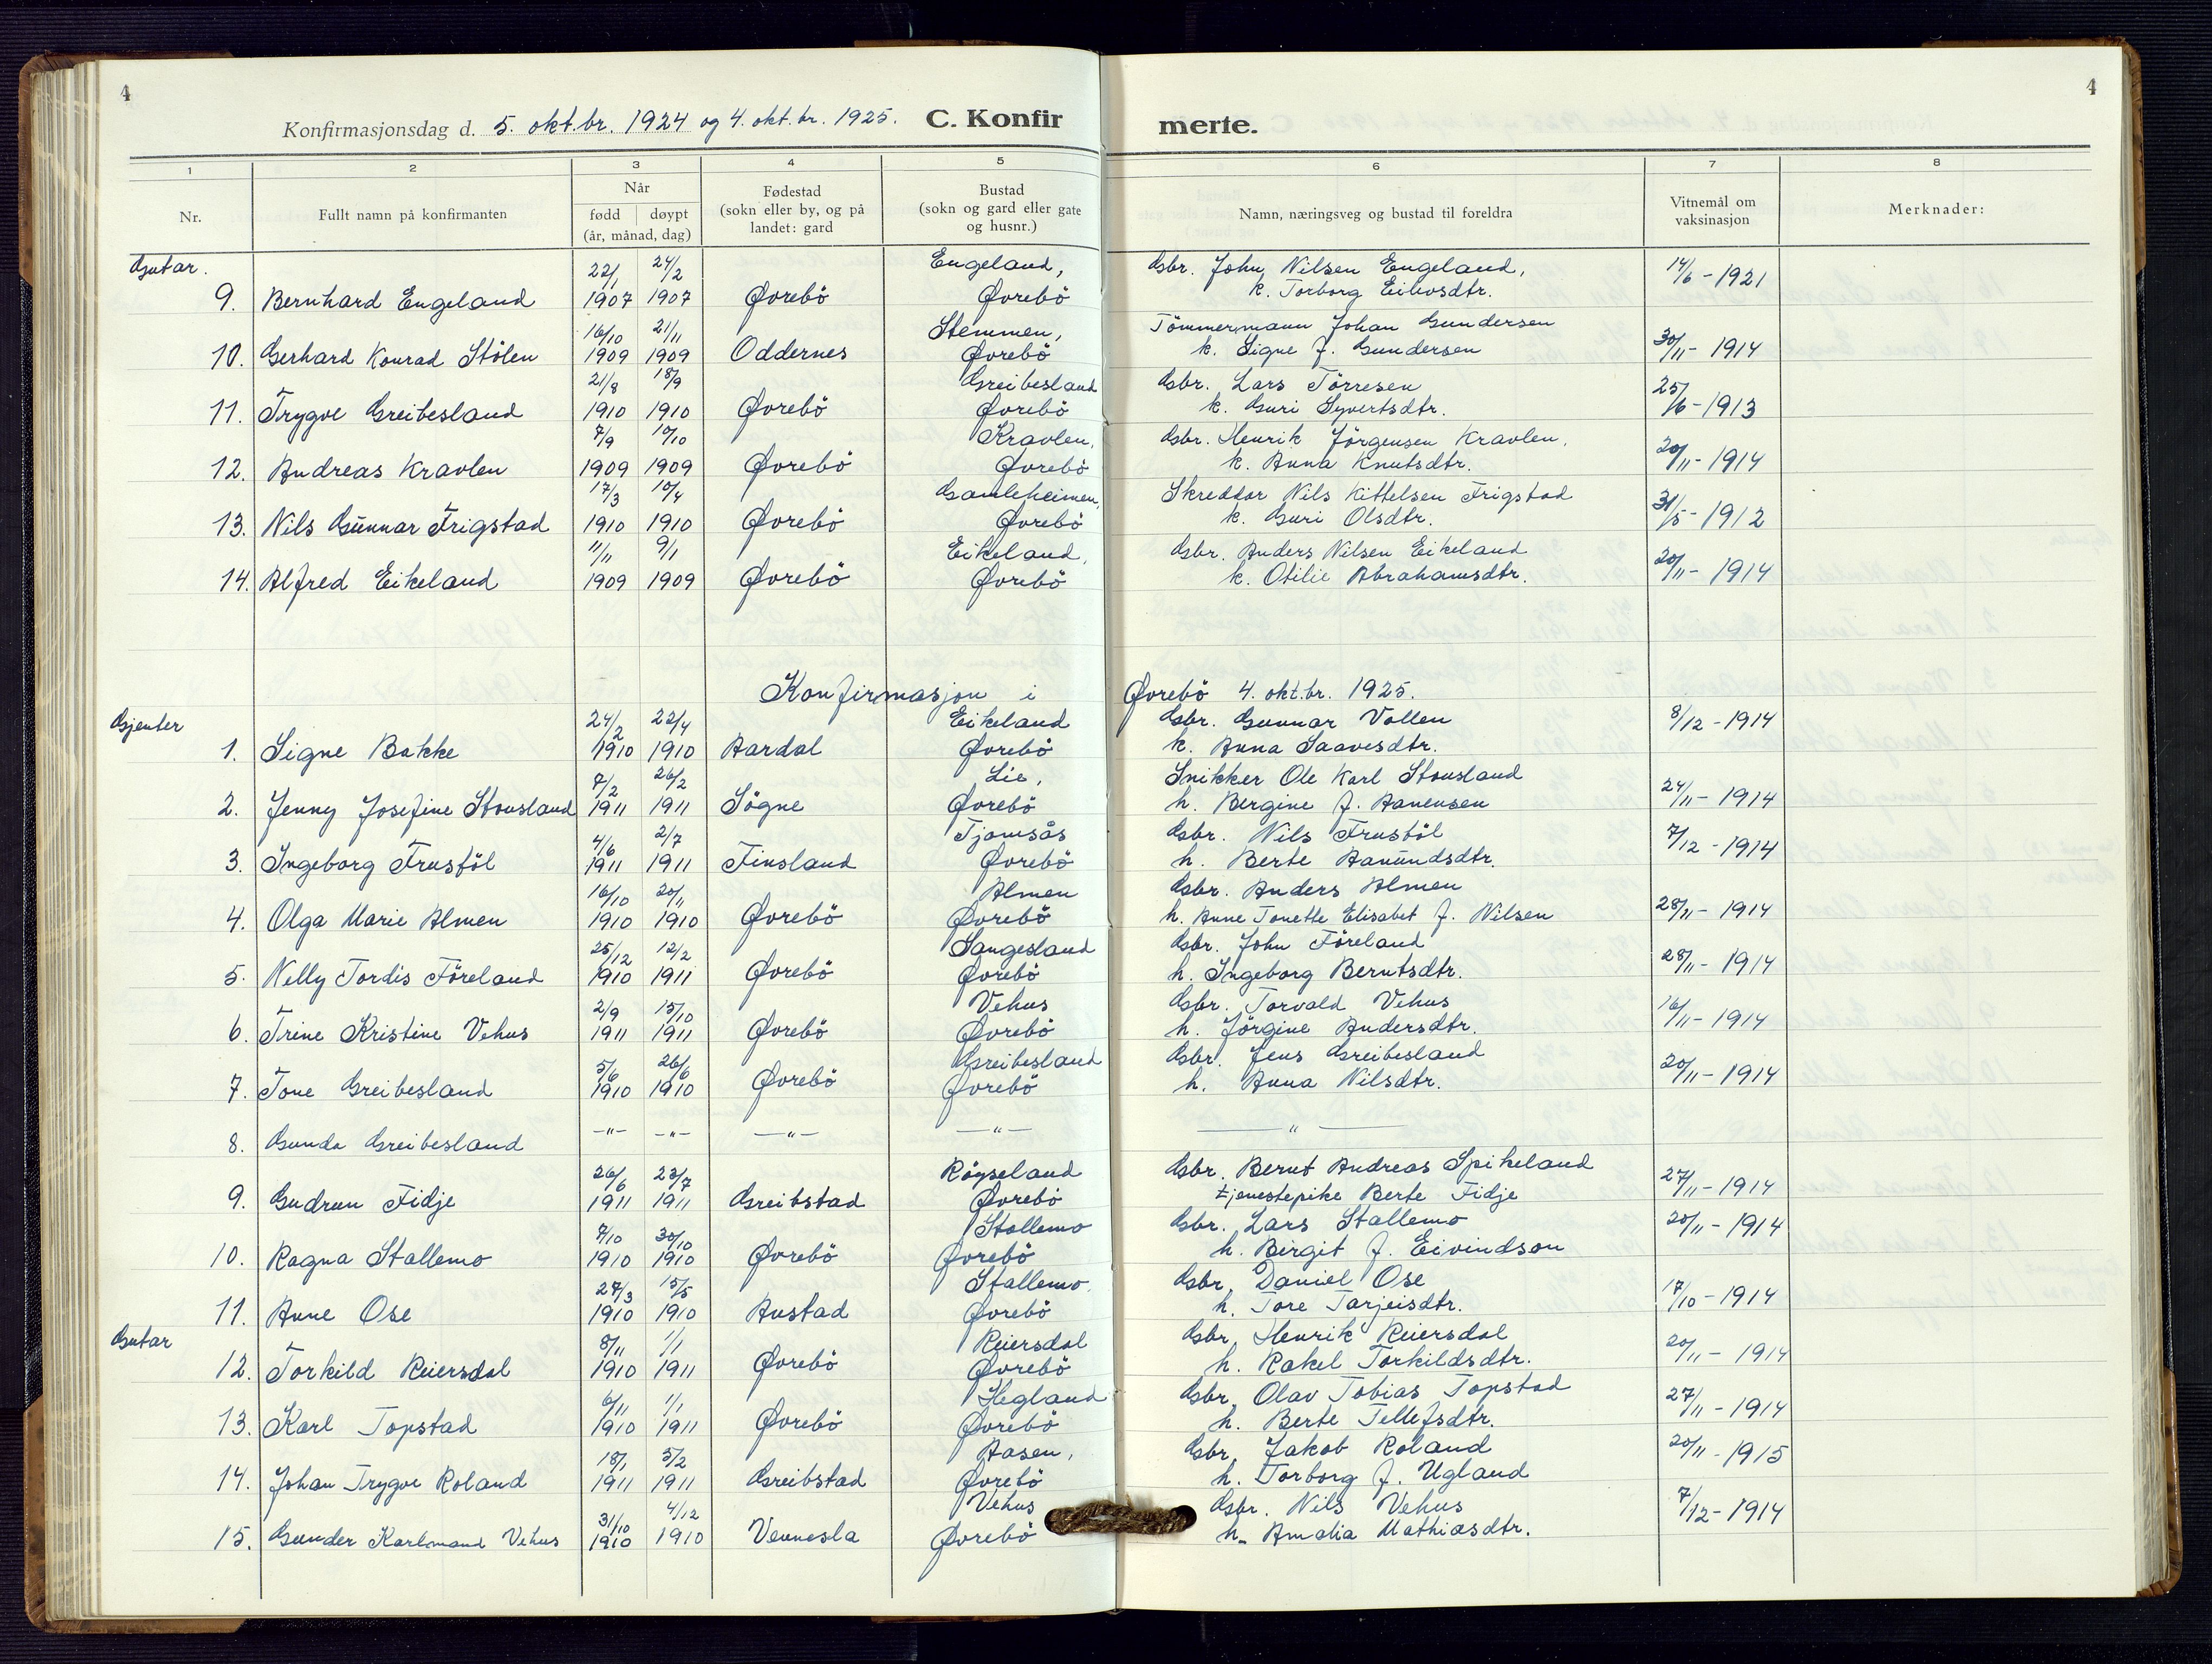 4
4
Konfirmasjonsdag d. 5. okt.br. 1924 og 4. okt.br. 1925. C. Konfirmerte.
1 2 3 4 5 6 7 8
Nr. Fullt namn på konfirmanten Når fødd døypt (år, månad, dag) Fødestad (sokn eller by, og på landet: gard Bustad (sokn og gard eller gate og husnr.) Namn, næringsveg og bustad til foreldra Vitnemål om vaksinasjon Merknader:
Gutar.
22/1 24/2 Engeland, Gbr. John Nilsen Engeland, 14/6 - 1921
9. Bernhard Engeland 1907 1907 Øvrebö Øvrebö k. Torborg Eilevsdtr.
16/10 21/11 Stemmen, Tömmermann Johan Gundersen
10. Gerhard Konrad Stölen 1909 1909 Oddernes Øvrebö k. Signe f. Gundersen 30/11 - 1914
21/8 18/9 Greibesland Gbr. Lars Törresen
11. Trygve Greibesland 1910 1910 Øvrebö Øvrebö k. Guri Syvertsdtr. 25/6 - 1913
7/9 10/10 Kravlen, Gbr. Henrik Jörgensen Kravlen,
12. Andreas Kravlen 1909 1909 Øvrebö Øvrebö k. Anna Knutsdtr. 20/11 - 1914
17/3 10/4 Gamleheimen, Skreddar Nils Kittelsen Frigstad
13. Nils Gunnar Frigstad 1910 1910 Øvrebö Øvrebö k. Guri Olsdtr. 31/5 - 1912
11/11 9/1 Eikeland, Gbr. Anders Nilsen Eikeland
14. Alfred Eikeland 1909 1909 Øvrebö Øvrebö k. Otilie Abrahamsdtr. 20/11 - 1914
Konfirmasjon i Øvrebö 4. okt.br. 1925.
Gjenter
24/2 22/4 Eikeland Gbr. Gunnar Vollen 8/12 - 1914
1. Signe Bakke 1910 1910 Aardal Øvrebö k. Anna Saavesdtr.
7/2 26/2 Lie, Snikker Ole Karl Stousland
2. Jenny Josefine Stousland 1911 1911 Sögne Øvrebö h. Bergine f. Aanensen 24/11 - 1914
4/6 2/7 Tjomsås Gbr. Nils Frustöl
3. Ingeborg Frustöl 1911 1911 Finsland Øvrebö h. Berte Aanundsdtr. 7/12 - 1914
16/10 20/11 Almen Gbr. Anders Almen
4. Olga Marie Almen 1910 1910 Øvrebö Øvrebö h. Anne Tonette Elisabet f. Nilsen 28/11 - 1914
25/12 12/2 Sangesland Gbr. John Föreland
5. Nelly Tordis Föreland 1910 1911 Øvrebö Øvrebö h. Ingeborg Berntsdtr. 28/11 - 1914
2/9 15/10 Vehus Gbr. Torvald Vehus
6. Trine Kristine Vehus 1911 1911 Øvrebö Øvrebö h. Jörgine Andersdtr. 16/11 - 1914
5/6 26/6 Greibesland Gbr. Jens Greibesland
7. Tone Greibesland 1910 1910 Øvrebö Øvrebö h. Anna Nilsdtr. 20/11 - 1914
8. Gunda Greibesland -"- -"- -"- -"- -"-
26/6 23/7 Röyseland Gbr. Bernt Andreas Spikeland
9. Gudrun Fidje 1911 1911 Greibstad Øvrebö tjenestepike Berte Fidje 27/11 - 1914
7/10 30/10 Stallemo Gbr. Lars Stallemo 20/11 - 1914
10. Ragna Stallemo 1910 1910 Øvrebö Øvrebö h. Birgit f. Eivindson
27/3 15/5 Stallemo, Gbr. Daniel Ose
11. Anne Ose 1910 1910 Austad Øvrebö h. Tore Tarjeisdtr. 17/10 - 1914
Gutar
8/11 1/1 Reiersdal Gbr. Henrik Reiersdal
12. Torkild Reiersdal 1910 1911 Øvrebö Øvrebö h. Rakel Torkildsdtr. 20/11 - 1914
6/11 1/1 Hegland Gbr. Olav Tobias Topstad
13. Karl Topstad 1910 1911 Øvrebö Øvrebö h. Berte Tellefsdtr. 27/11 - 1914
18/1 5/2 Aasen, Gbr. Jakob Roland 20/11 - 1915
14. Johan Trygve Roland 1911 1911 Greibstad Øvrebö h. Torborg f. Ugland
31/10 4/12 Vehus Gbr. Nils Vehus 7/12 - 1914
15. Gunder Karlmand Vehus 1910 1910 Vennesla Øvrebö h. Amalia Mathiasdtr.